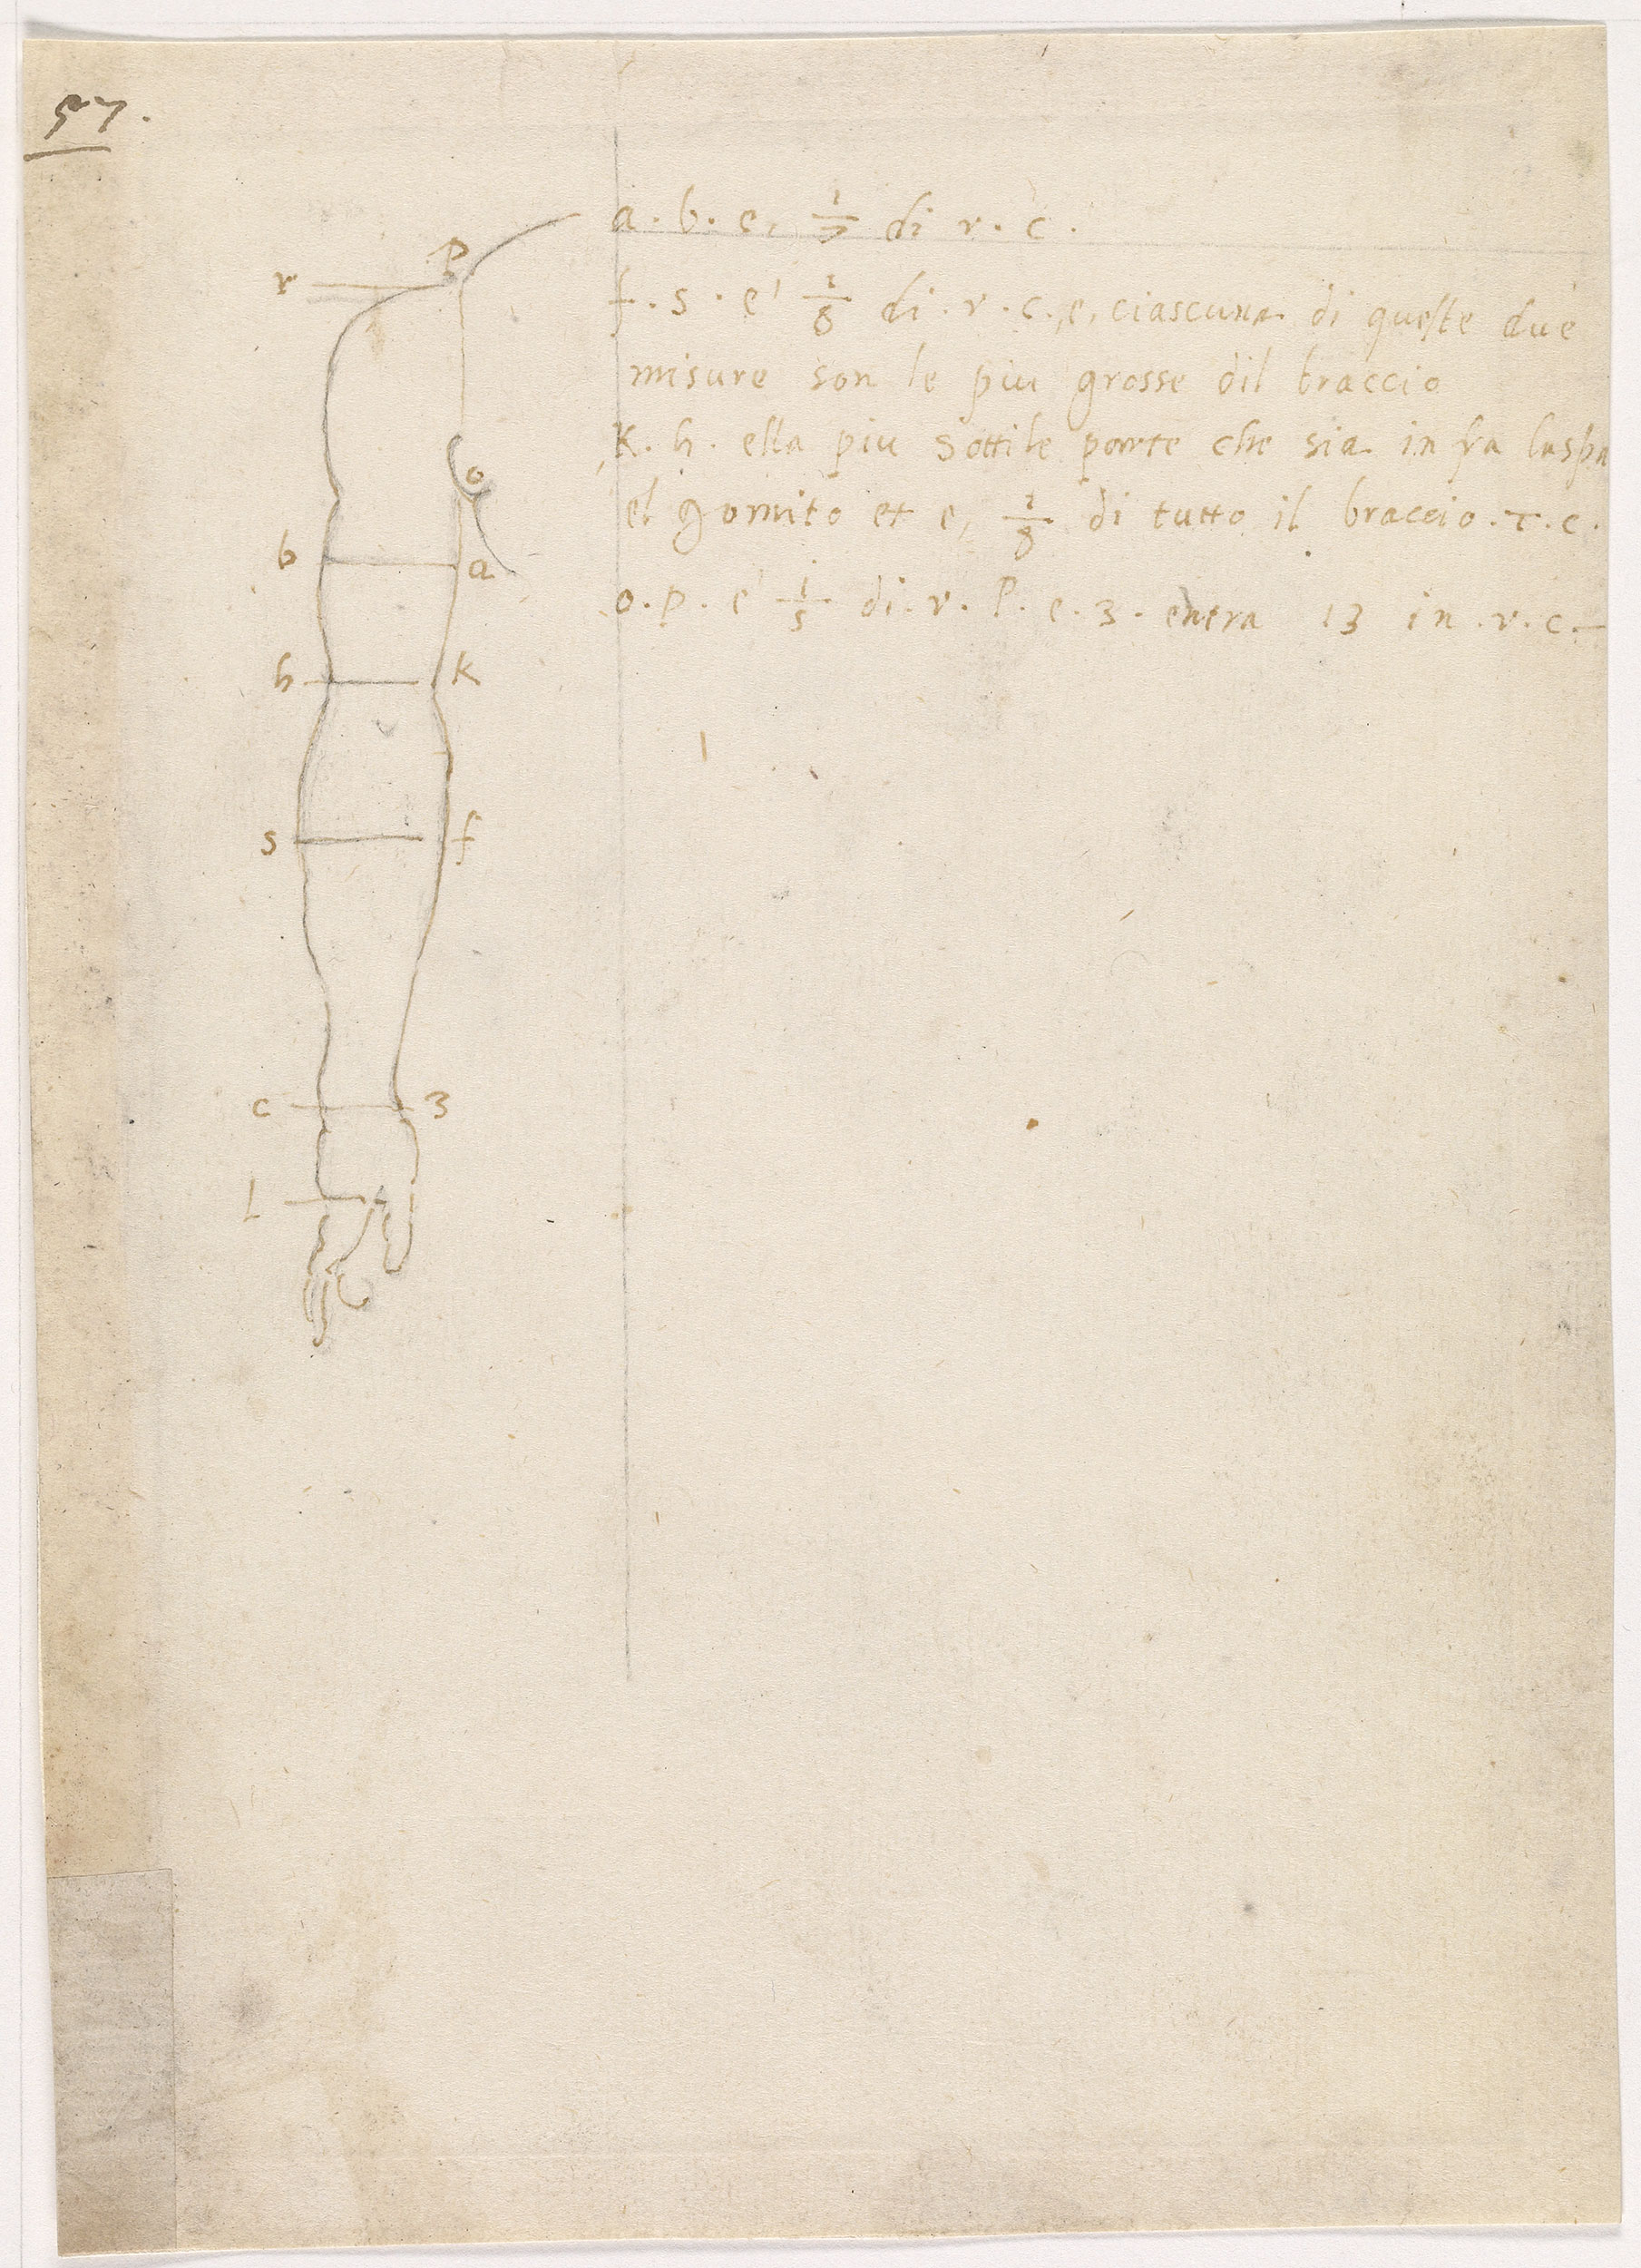 57.
a. b. e, 1/7 di r. c.
f. s. e' 1/8 di. r. c., e, ciascuna. di queste due
misure son le piu grosse dil braccio
K. h. ella piu sottile parte che sia infra laspa
el gomito et e, 1/8 di tutto il braccio. r. c.
o. p. e' 1/5 di. r. P. e. 3. entra 13 in. r. c.
r
P
o
b
a
h
K
s
f
c
3
L